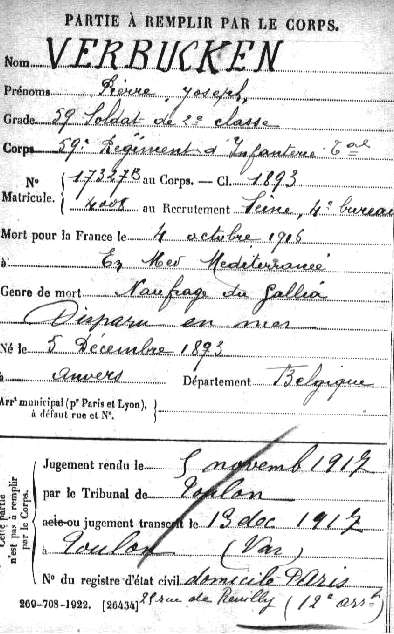 PARTIE À REMPLIR PAR LE CORPS.
Nom VERBUCKEN
Prénoms Pierre, Joseph,
Grade 59 Soldat de 2e classe
Corps 59e Régiment d'Infanterie Tal
N° Matricule. { 17327B au Corps. — Cl. 1893
4001 au Recrutement Seine, 4e bureau
Mort pour la France le 4 octobre 1916
à En Mer Méditerranée
Genre de mort Naufrage du Gallia
Disparu en mer
Né le 5 Décembre 1893
à Anvers Département Belgique
Arrt municipal (pr Paris et Lyon),
à défaut rue et N°.
Cette partie n'est pas à remplir par le Corps.
Jugement rendu le 5 novemb 1917
par le Tribunal de Toulon
acte ou jugement transcrit le 13 dec 1917
à Toulon (Var)
N° du registre d'état civil domicile PARIS
269-708-1922. [26434] rue de Reuilly (12e arrt)